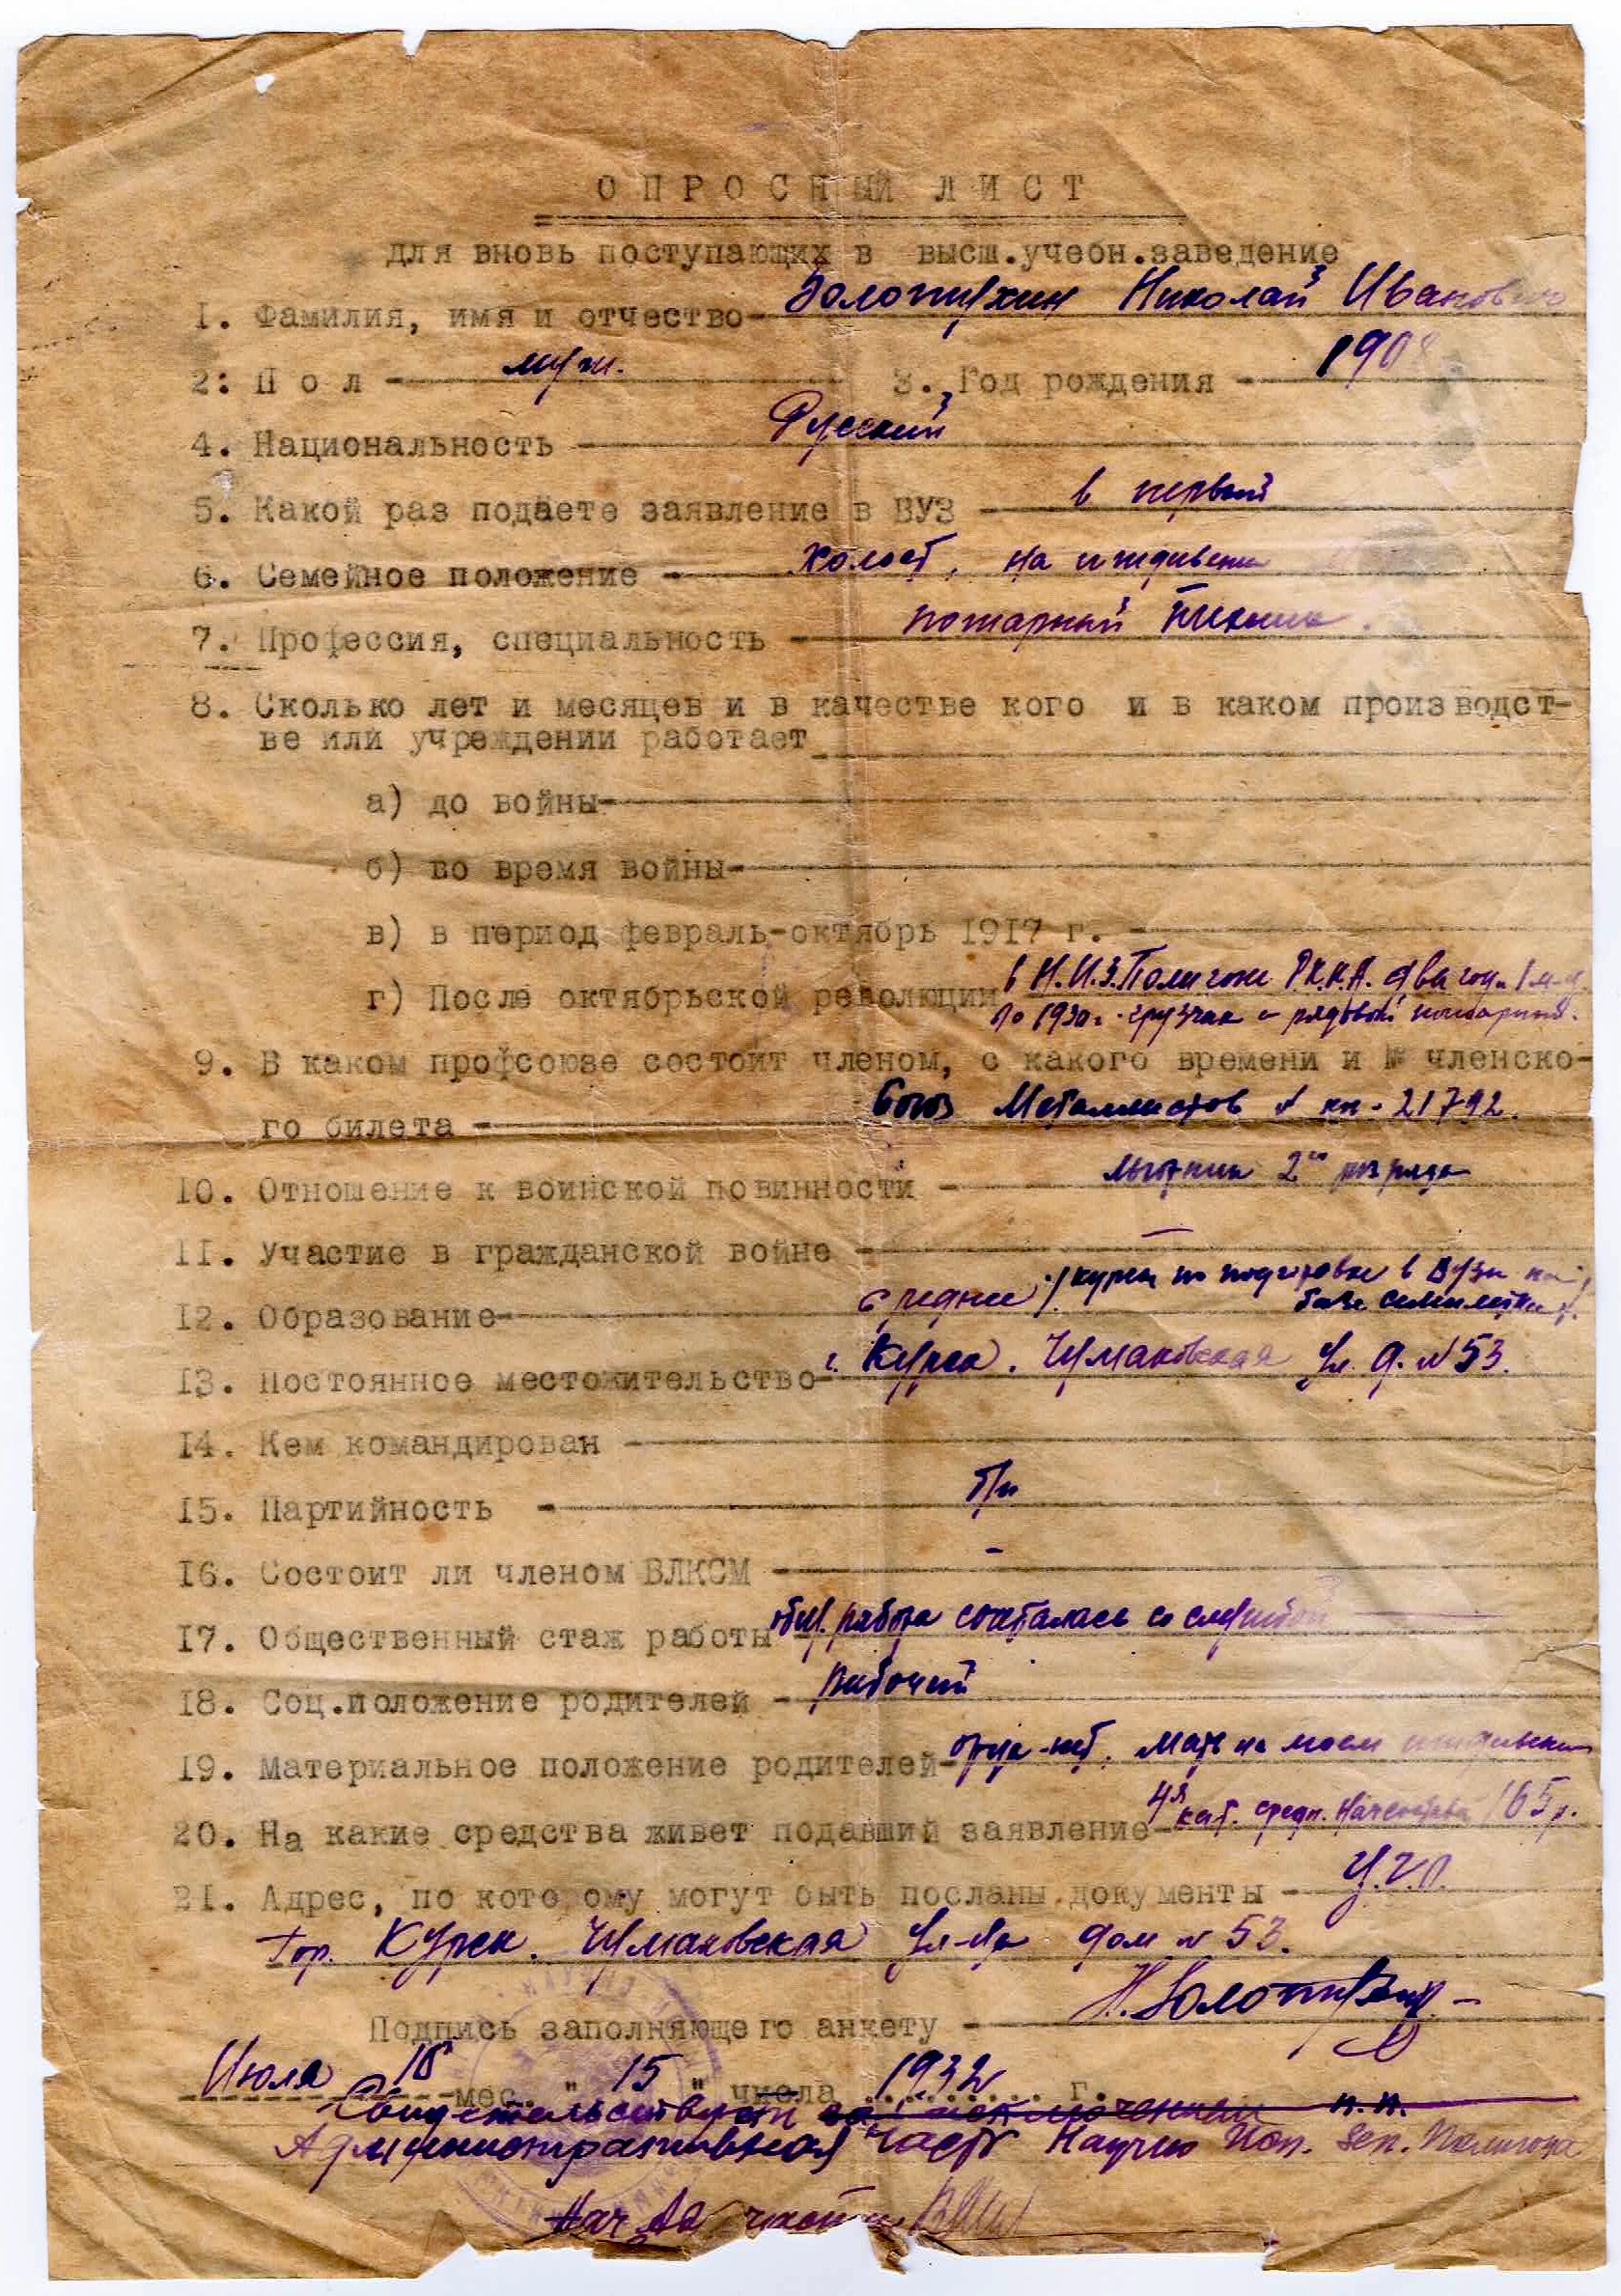 ОПРОСНЫЙ ЛИСТ
для вновь поступающих в высш.учебн.заведение
1. Фамилия, имя и отчество - Золотухин Николай Иванович
2: Пол - муж. 3. Год рождения - 1908
4. Национальность - Русский
5. Какой раз подаете заявление в ВУЗ - в первый
6. Семейное положение - холост, на иждивении
7. Профессия, специальность - пожарный техник.
8. Сколько лет и месяцев и в качестве кого и в каком производст-
ве или учреждении работает
а) до войны-
б) во время войны-
в) в период февраль-октябрь 1917 г. -
г) После октябрьской революции в Н.И.З.Полигоне Р.К.К.А. два года 1 м-ц.
до 1930г. грузчик и рядовой пожарный.
9. В каком профсоюзе состоит членом, с какого времени и № членско-
го билета - Союз Металлистов № кн - 21792.
10. Отношение к воинской повинности - льготник 2го разряда
11. Участие в гражданской войне - —
12. Образование- среднее /курсы по подготовке в Вузы на
базе семилетки/.
13. Постоянное местожительство- г. Курск. Чумаковская ул. д. № 53.
14. Кем командирован -
15. Партийность - б/п
16. Состоит ли членом ВЛКСМ - -
17. Общественный стаж работы общ. работа сочеталась со службой
18. Соц.положение родителей - рабочий
19. Материальное положение родителей- отца-нет. Мать на моем иждивении
20. На какие средства живет подавший заявление- 4я кат. средн. начсостава 165 р.
21. Адрес, по кото ому могут быть посланы документы -
гор. Курск. Чумаковская ул-ца дом № 53.
Подпись заполняющего анкету - Н.Золотухин
Июля мес. " 15 " числа 1932 г.
Свидетельствует за исключением п.п.
Административная часть Научно Исп. Зен. Полигона
Нач Ад части